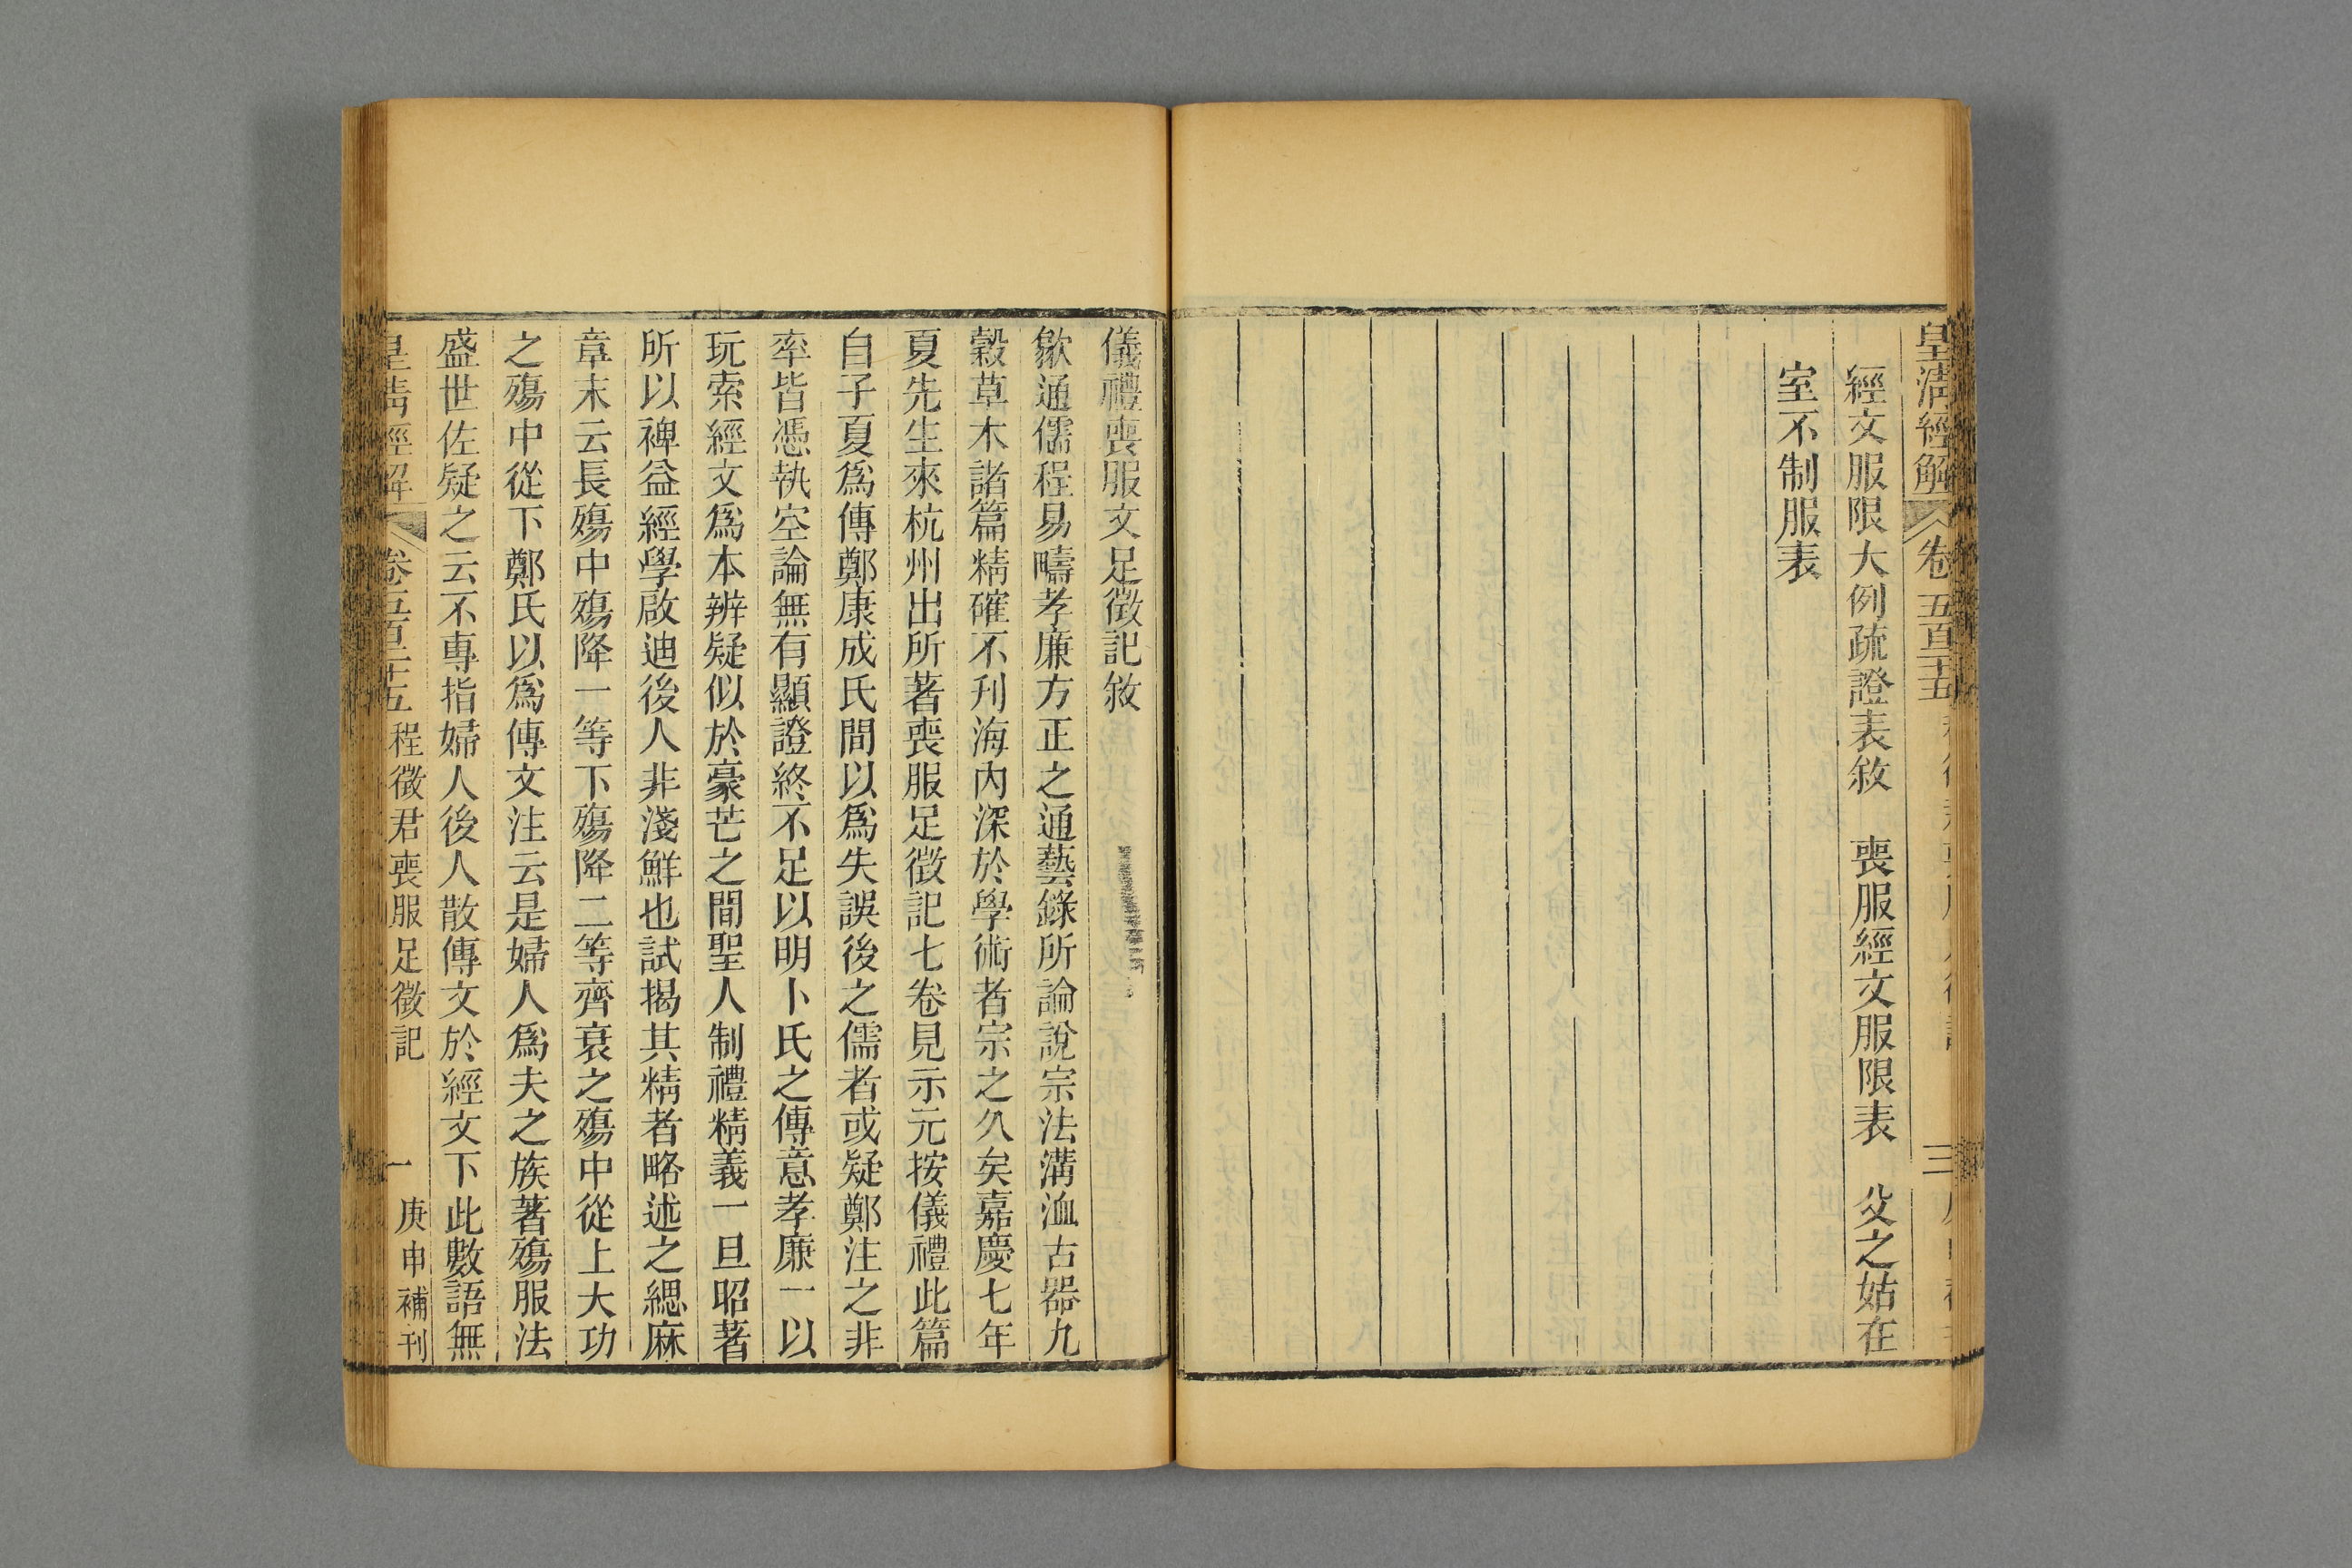 皇清經解 卷五百二十五
三
經文服限大例疏證表敘　喪服經文服限表　父之姑在
室不制服表
儀禮喪服文足徵記敘
歙通儒程易疇孝廉方正之通藝錄所論說宗法溝洫古器九
穀草木諸篇精確不刊海內深於學術者宗之久矣嘉慶七年
夏先生來杭州出所著喪服足徵記七卷見示元按儀禮此篇
自子夏爲傳鄭康成氏間以爲失誤後之儒者或疑鄭注之非
率皆憑執空論無有顯證終不足以明卜氏之傳意孝廉一以
玩索經文爲本辨疑似於豪芒之間聖人制禮精義一旦昭著
所以裨益經學啟迪後人非淺鮮也試揭其精者略述之緦麻
章末云長殤中殤降一等下殤降二等齊衰之殤中從上大功
之殤中從下鄭氏以爲傳文注云是婦人爲夫之族著殤服法
盛世佐疑之云不專指婦人後人散傳文於經文下此數語無
皇清經解 卷五百二十五 程徵君喪服足徵記 一 庚申補刊